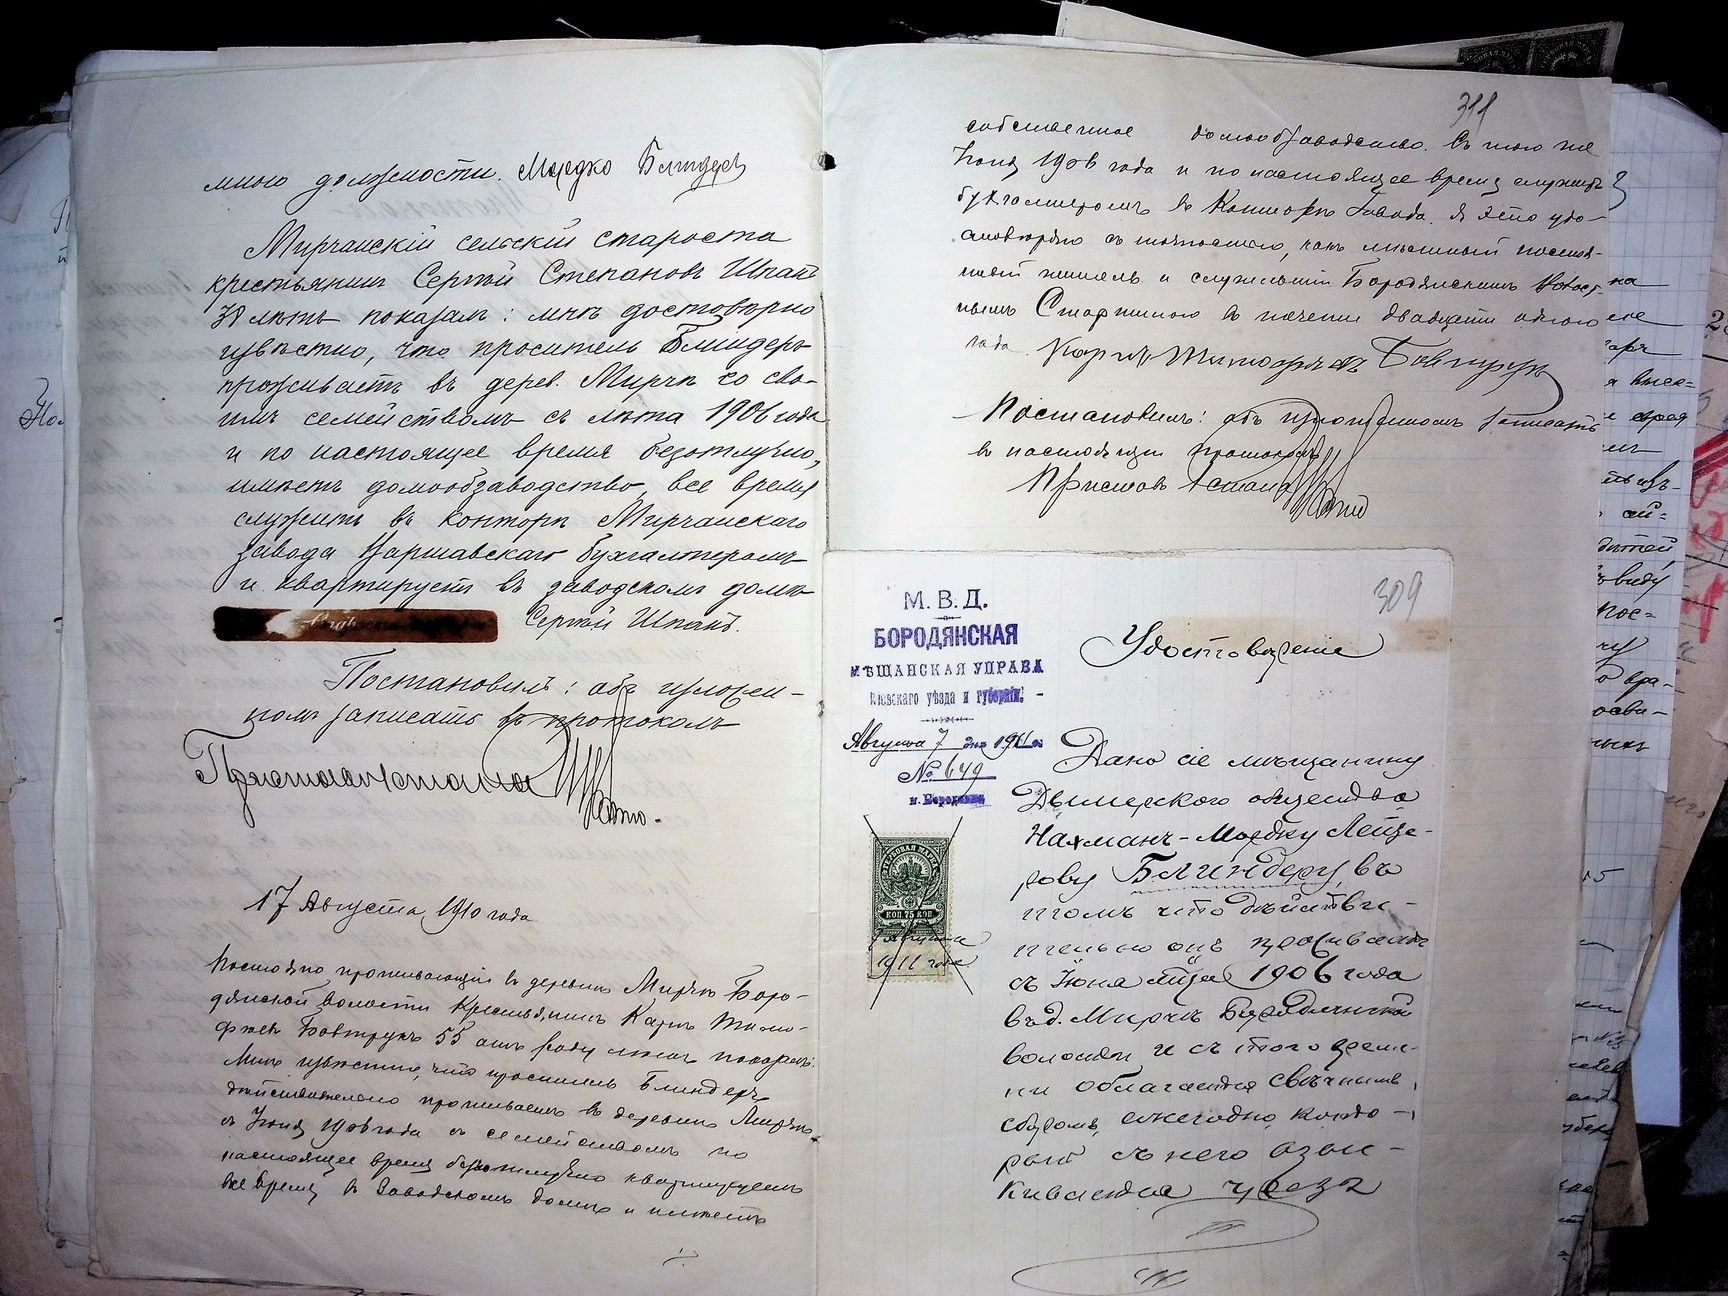 мною должности. Мордко Блиндер
Мирчанскій сельскій староста
крестьянинъ Сергѣй Степановъ Шпакъ
38 лѣтъ показалъ: мнѣ достовѣрно
извѣстно, что проситель Блиндеръ
проживаетъ въ дерев. Мирчи со сво-
имъ семействомъ съ лѣта 1906 года
и по настоящее время безотлучно,
имѣетъ домообзаводство, все время
служитъ въ конторѣ Мирчанскаго
завода Варшавскаго бухгалтеромъ
и квартируетъ въ заводскомъ домѣ
Сергѣй Шпакъ.
Постановилъ: объ изложен-
номъ записать въ протоколъ
Приставъ 4 стана
17 Августа 1910 года
Постоянно проживающій въ деревнѣ Мирчѣ Боро-
дянской волости Крестьянинъ Карпъ Тимо-
фѣевъ Бовтрукъ 55 отъ роду лѣтъ показалъ:
Мнѣ извѣстно, что проситель Блиндеръ
дѣйствительно проживаетъ въ деревнѣ Мирчѣ
съ Іюня 1906 года съ семействомъ по
настоящее время безотлучно квартируетъ
все время въ Заводскомъ домѣ и имѣетъ
311
собственное домообзаводство. Съ того же
Іюня 1906 года и по настоящее время служитъ
бухгалтеромъ въ Конторѣ Завода. Я это удо-
стовѣряю съ точностью, какъ мѣстный постоя-
нный житель и служившій Бородянскимъ Волост-
нымъ Старшиною въ теченіи двадцати одного
года. Карпъ Тимофѣевъ Бовтрукъ
Постановилъ: объ изложенномъ записать
въ настоящій протоколъ
Приставъ 4 стана
309
М. В. Д.
БОРОДЯНСКАЯ
МѢЩАНСКАЯ УПРАВА
Кіевскаго уѣзда и губерніи.
Августа 7 дня 1911 г.
№ 649
м. Бородянка
ГЕРБОВАЯ МАРКА
КОП 75 КОП
7 Августа
1911 года
Удостовѣреніе
Дано сіе мѣщанину
Дымерского общества
Нахманъ-Мордку Лейзе-
рову Блиндеру, въ
томъ что дѣйстви-
тельно онъ проживаетъ
съ Іюня мѣсяца 1906 года
въ д. Мирчи Бородянской
волости и съ того време-
ни облагается свѣчнымъ
сборомъ, ежегодно, кото-
рый съ него взыс-
кивается чрезъ